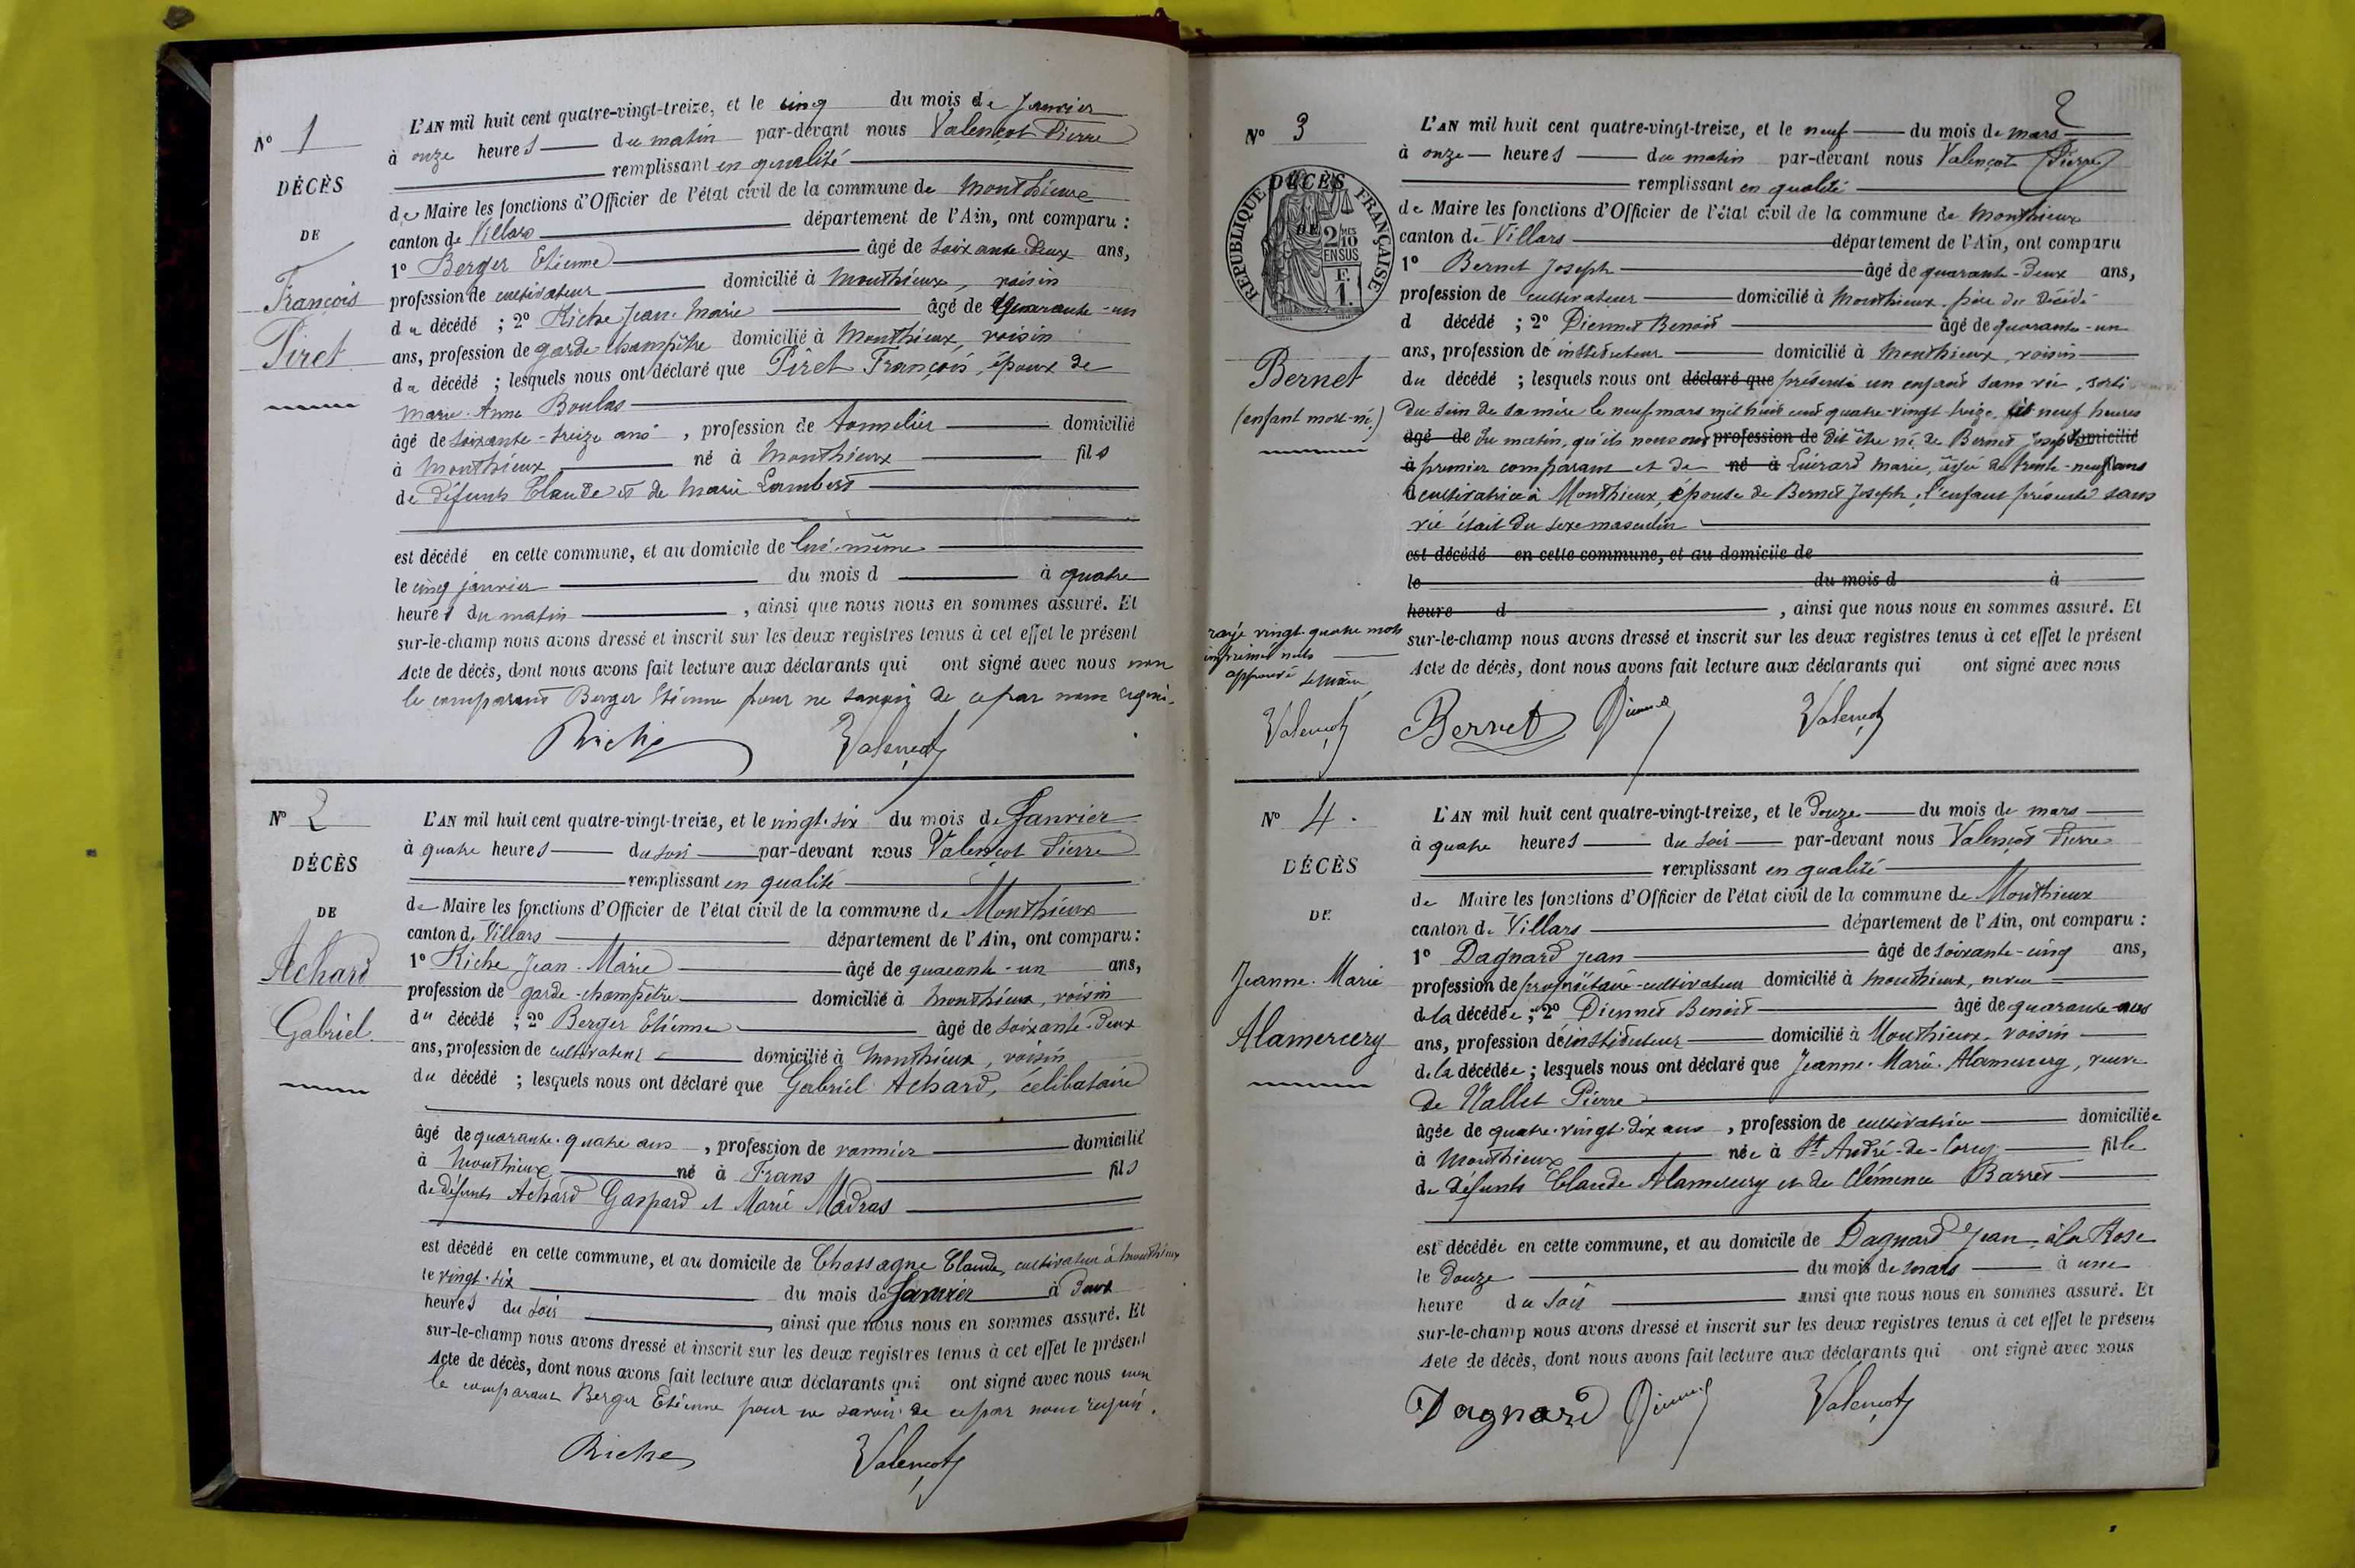 Nº 1
DÉCÈS
DE
François
Piret
L'AN mil huit cent quatre-vingt-treize, et le cinq du mois de Janvier
à onze heures du matin par-devant nous Valençot Pierre
remplissant en qualité
de Maire les fonctions d'Officier de l'état civil de la commune de Monthieux
canton de Villars département de l'Ain, ont comparu :
1º Berger Etienne âgé de soixante-deux ans,
profession de cultivateur domicilié à Monthieux, voisin
du décédé ; 2º Riche Jean-Marie âgé de quarante-un
ans, profession de garde-champêtre domicilié à Monthieux, voisin
du décédé ; lesquels nous ont déclaré que Piret François, époux de
Marie-Anne Boulas
âgé de soixante-treize ans, profession de tonnelier domicilié
à Monthieux né à Monthieux fils
de défunts Claude et de Marie Lambert
est décédé en cette commune, et au domicile de lui-même
le cinq janvier du mois d à quatre
heures du matin, ainsi que nous nous en sommes assuré. Et
sur-le-champ nous avons dressé et inscrit sur les deux registres tenus à cet effet le présent
Acte de décès, dont nous avons fait lecture aux déclarants qui ont signé avec nous non
le comparant Berger Etienne pour ne savoir de ce par nous requis.
Riche Valençot
Nº 2
DÉCÈS
DE
Achard
Gabriel
L'AN mil huit cent quatre-vingt-treize, et le vingt-six du mois de Janvier
à quatre heures du soir par-devant nous Valençot Pierre
remplissant en qualité
de Maire les fonctions d'Officier de l'état civil de la commune de Monthieux
canton de Villars département de l'Ain, ont comparu :
1º Riche Jean-Marie âgé de quarante-un ans,
profession de garde-champêtre domicilié à Monthieux, voisin
du décédé ; 2º Berger Etienne âgé de soixante-deux
ans, profession de cultivateur domicilié à Monthieux, voisin
du décédé ; lesquels nous ont déclaré que Gabriel Achard, célibataire
âgé de quarante-quatre ans, profession de vannier domicilié
à Monthieux né à Frans fils
de défunts Achard Gaspard et Marie Madras
est décédé en cette commune, et au domicile de Chassagne Claude, cultivateur à Monthieux
le vingt-six du mois de Janvier à deux
heures du soir, ainsi que nous nous en sommes assuré. Et
sur-le-champ nous avons dressé et inscrit sur les deux registres tenus à cet effet le présent
Acte de décès, dont nous avons fait lecture aux déclarants qui ont signé avec nous non
le comparant Berger Etienne pour ne savoir de ce par nous requis.
Riche Valençot
2
Nº 3
DÉCÈS
DE
RÉPUBLIQUE FRANÇAISE
2 MES 10
EN SUS
F.
1.
Bernet
(enfant mort-né)
L'AN mil huit cent quatre-vingt-treize, et le neuf du mois de mars
à onze heures du matin par-devant nous Valençot Pierre
remplissant en qualité
de Maire les fonctions d'Officier de l'état civil de la commune de Monthieux
canton de Villars département de l'Ain, ont comparu
1º Bernet Joseph âgé de quarante-deux ans,
profession de cultivateur domicilié à Monthieux, père du décédé
d décédé ; 2º Diennet Benoit âgé de quarante-un
ans, profession de instituteur domicilié à Monthieux, voisin
du décédé ; lesquels nous ont déclaré que présenté un enfant sans vie, sorti
du sein de sa mère le neuf mars mil huit cent quatre-vingt-treize, à neuf heures
âgé de du matin, qu'ils nous ont profession de dit être né de Bernet Joseph domicilié
à premier comparant et de né à Luérard Marie, âgée de trente-neuf ans
cultivatrice à Monthieux, épouse de Bernet Joseph, l'enfant présenté sans
vie était du sexe masculin
est décédé en cette commune, et au domicile de
le du mois d à
heure d, ainsi que nous nous en sommes assuré. Et
sur-le-champ nous avons dressé et inscrit sur les deux registres tenus à cet effet le présent
Acte de décès, dont nous avons fait lecture aux déclarants qui ont signé avec nous
rayé vingt-quatre mots
imprimés nuls
approuvé le Maire
Valençot Bernet Diennet Valençot
Nº 4.
DÉCÈS
DE
Jeanne-Marie
Alamercery
L'AN mil huit cent quatre-vingt-treize, et le douze du mois de mars
à quatre heures du soir par-devant nous Valençot Pierre
remplissant en qualité
de Maire les fonctions d'Officier de l'état civil de la commune de Monthieux
canton de Villars département de l'Ain, ont comparu :
1º Dagnard Jean âgé de soixante-cinq ans,
profession de propriétaire-cultivateur domicilié à Monthieux, neveu
de la décédée ; 2º Diennet Benoit âgé de quarante-un
ans, profession de instituteur domicilié à Monthieux, voisin
de la décédée ; lesquels nous ont déclaré que Jeanne-Marie Alamercery, veuve
de Nallet Pierre
âgée de quatre-vingt-dix ans, profession de cultivatrice domiciliée
à Monthieux née à St André-de-Corcy fille
de défunts Claude Alamercery et de Clémence Barret
est décédée en cette commune, et au domicile de Dagnard Jean, à la Rose
le douze du mois de mars à une
heure du soir ainsi que nous nous en sommes assuré. Et
sur-le-champ nous avons dressé et inscrit sur les deux registres tenus à cet effet le présent
Acte de décès, dont nous avons fait lecture aux déclarants qui ont signé avec nous
Dagnard Diennet Valençot